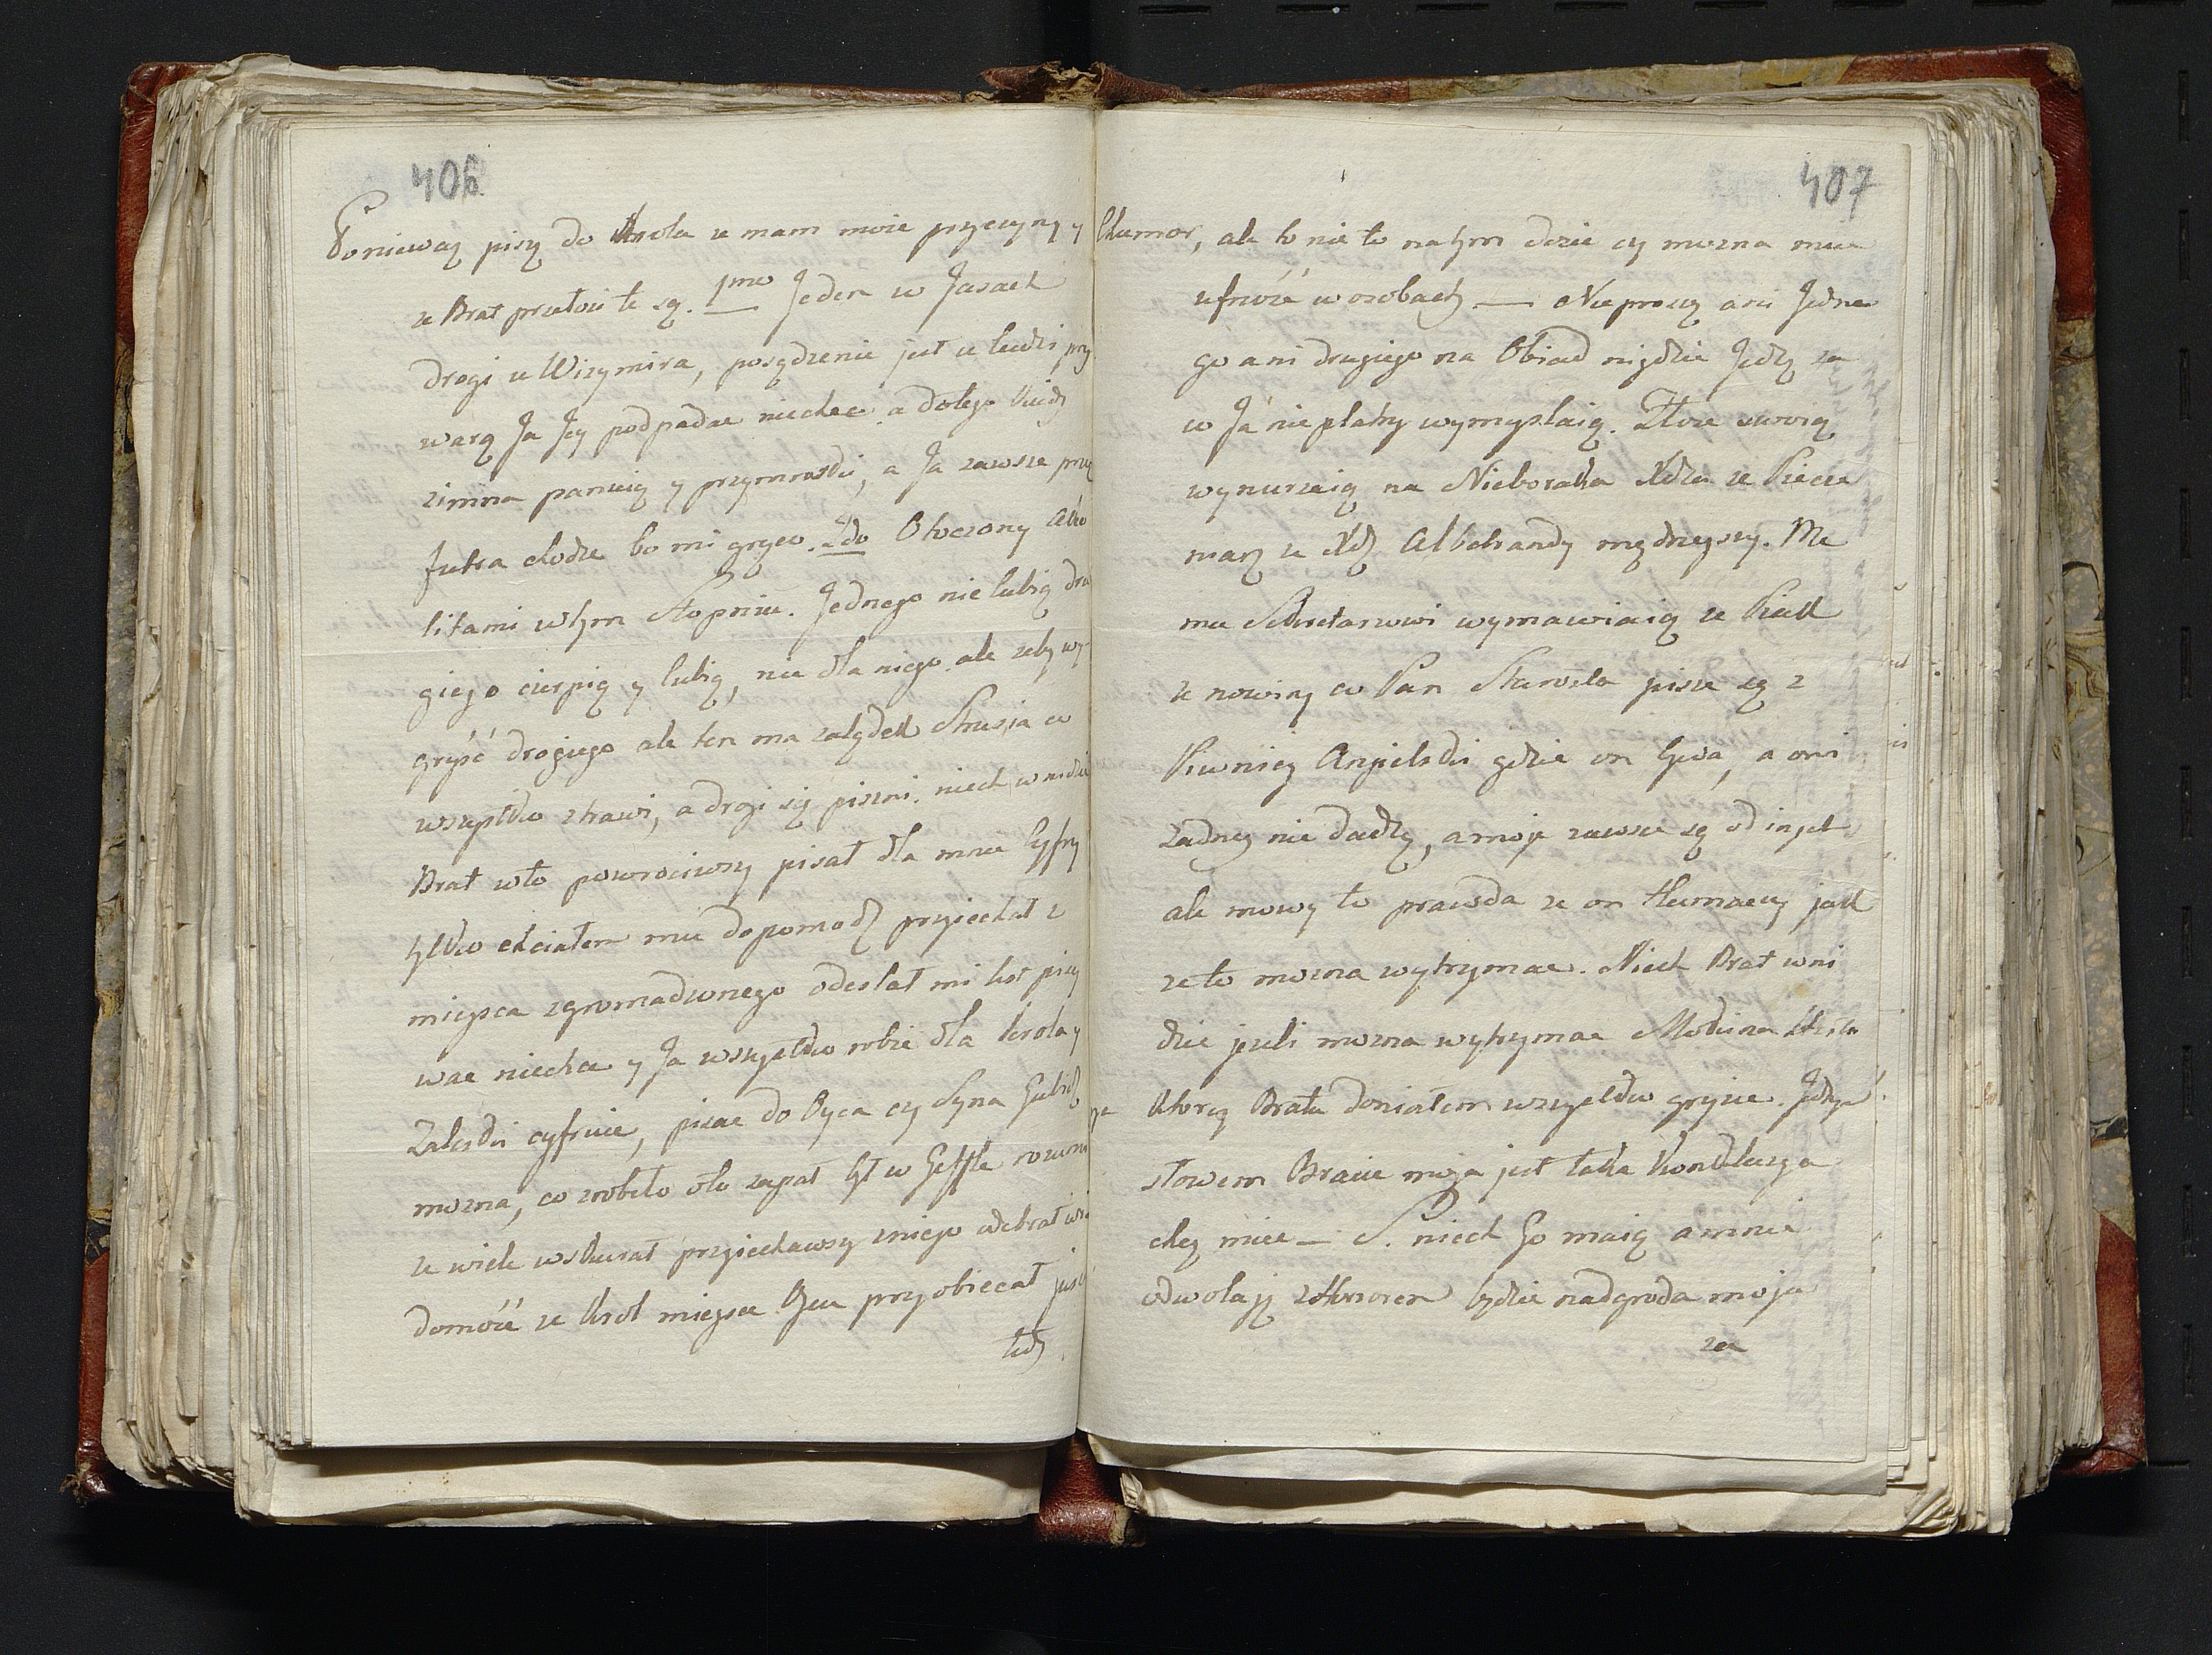 406
Poniewaz piszę do Krola ze mam moie przyczyny y
ze Brat przełoii te są. 1mo Jeden w Jasach
drogi u Wizymira, posądzenie jest u ludzi, przy
warą Ja Jey podpadac niechcę a dolego
zimna panuią y przymroski, a Ja zawsze przy
futra chodze bo mi gryeo. 2do Otoczony
litami wtym Stopniu. Jednego nie lubią dru
giego cierpią y lubią, nie dla niego ale zeby wy-
gryść drogiego ale ten ma załądek Strusia co
wszystko strawi, a drogi się pieni. niech wnidzie
Brat wto powrociwszy pisał dla mnie Cyfry
tylko chciałem mu dopomodz przyiechał z
mieysca zgromadzonego odesłał mi list pisy
wac niechce y Ja wszystko robie dla Krola y
Zaleski cyfruie, pisac do Oyca czy Syna
mozna, co zrobiło oto zapał był w rowno
ze wiele wskurał przyiechawszy zniego odebrał wia
domość ze Krol mieysce Jemu przyobiecał
tedy
407
Chumor, ale to nie to natym idzie czy mozna mu
ufność w osobach — Nie proszą ani Jedne
go ani drugiego na Obiad nigdzie Jedzą za
co Ja nie płatny wymyslaią. Złosc swoią
wynurzaią na Nieboraka Xdza ze Piecze
marz ze Xdz Albetrandy mądrzeyszy. Me
mu Sekretarzowi wymawiaią ze
ze nowiny co Pan Starosta pisze są z
Piwnicy Angielski gdzie on bywa, a oni
Zadney nie dadzą, a moje zawsze są od inych
ale mowy to prawda ze on tłumaczy jak
ze to mozna wytrzymac. Niech Brat wni
dzie jezeli mozna wytrzymac
Ktorey Bratu doniosłem wszystko gryzie. Jedny
słowem Bracie moja jest taka Konkluzya
chcą miec — S. niech Go maią a mnie
odwołają zHonorem będzie nadgroda moja
za